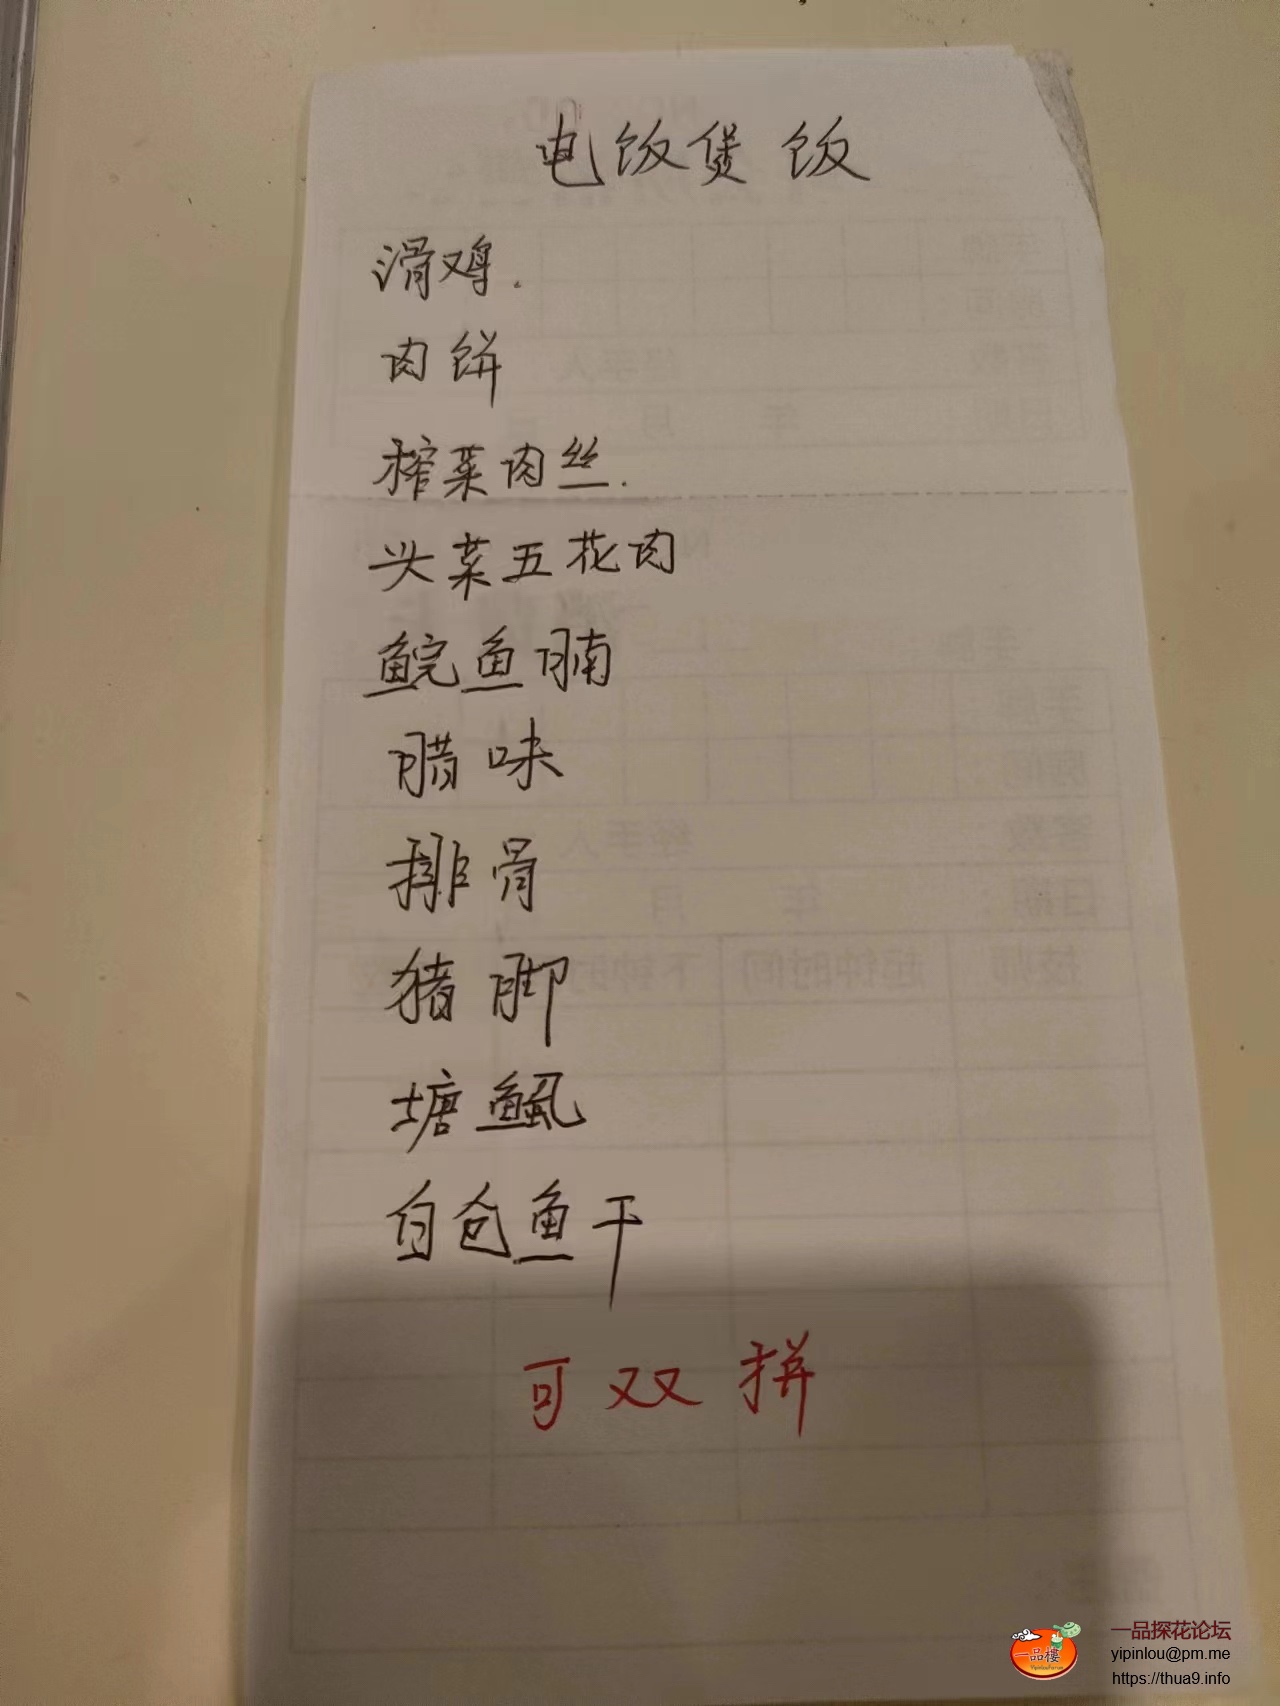 电饭煲饭
滑鸡.
肉饼
榨菜肉丝.
头菜五花肉
鲩鱼腩
腊味
排骨
猪脚
塘鲺
白仓鱼干
可双拼
一品探花论坛
yipinlou@pm.me
https://thua9.info
一品楼